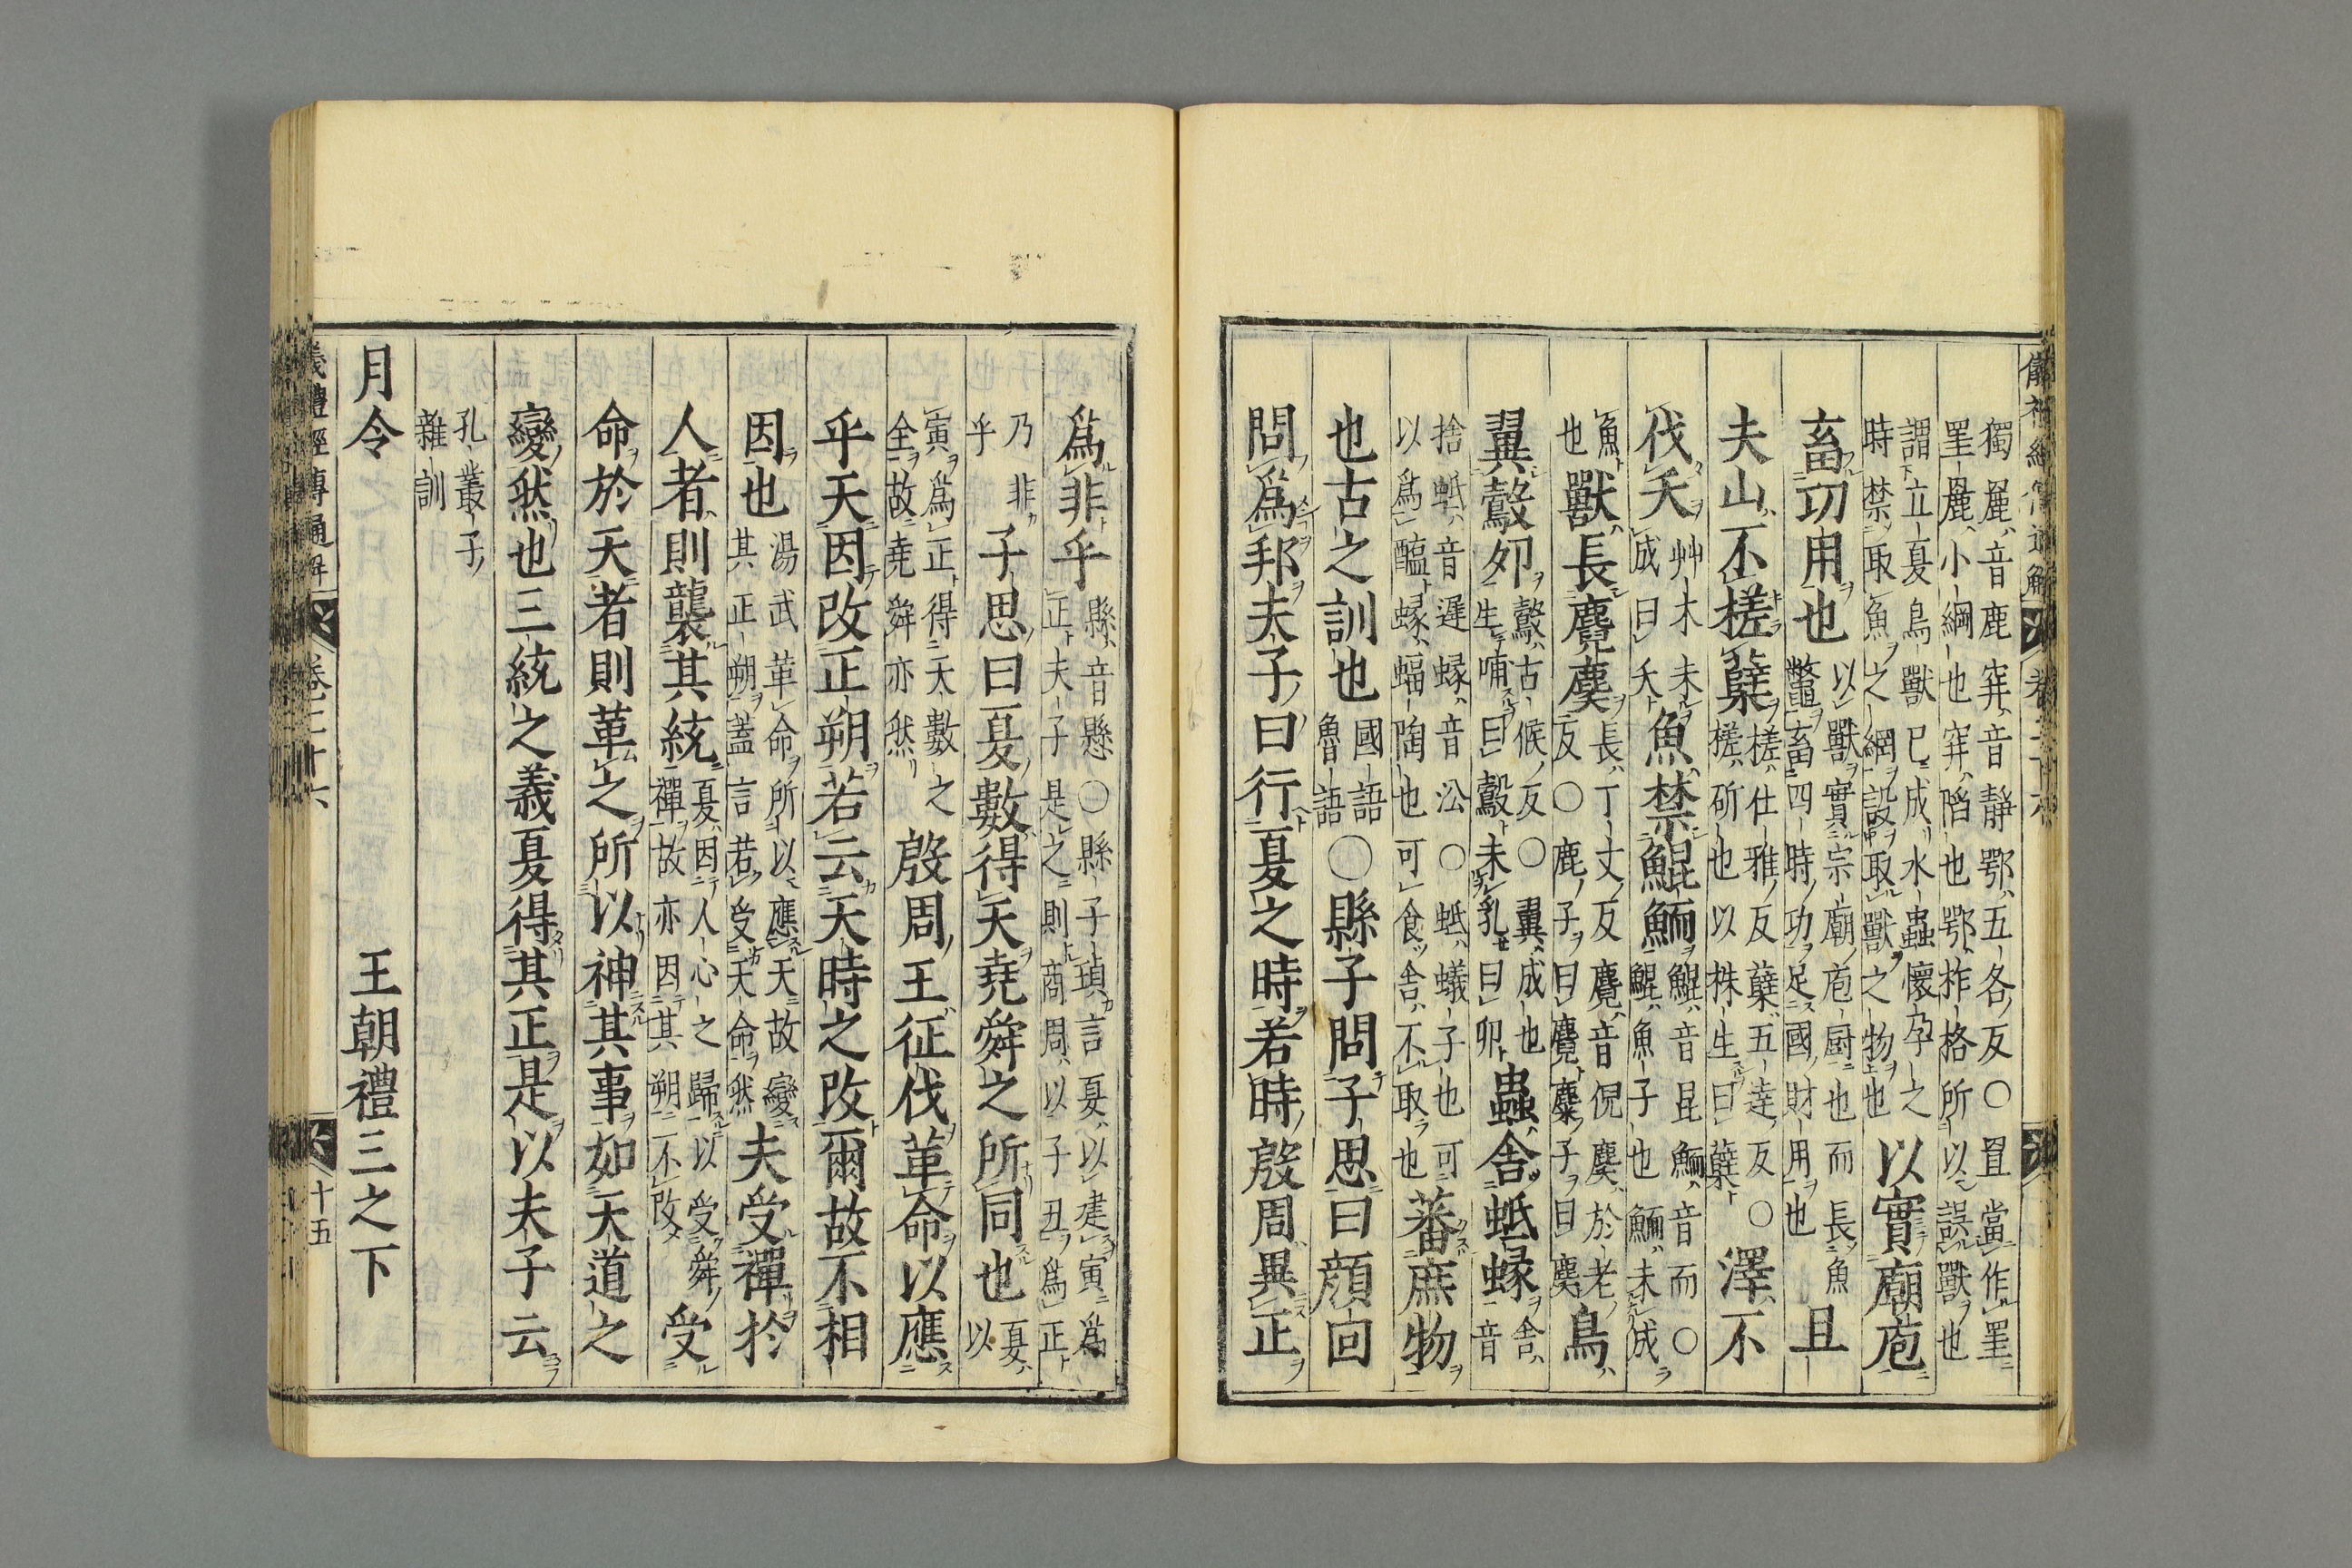 儀禮經傳通解 卷二十六
獨麗音鹿穽音靜鄂五各反○罝當作罜
罜麗小網也穽陷也鄂柞格所以誤獸也
謂立夏鳥獸已成水蟲懷孕之
時禁取魚之網設取獸之物也
以實廟庖
畜功用也
以獸實宗廟庖厨也而長魚
鼈畜四時功足國財用也
且
夫山不槎蘖
槎仕雅反蘖五達反○
槎斫也以株生曰蘖
澤不
伐夭
艸木未
成曰夭
魚禁鯤鮞
鯤音昆鮞音而○
鯤魚子也鮞未成
魚
也
獸長麑麌
長丁丈反麑音倪麌於老
反○鹿子曰麑麋子曰麌
鳥
翼鷇夘
鷇古候反○翼成也
生哺曰鷇未乳曰卵
蟲舍蚳蝝
舍
音
捨蚳音遲蝝音沿○蚳蟻子也可
以爲醢蝝蝠陶也可食舍不取也
蕃庶物
也古之訓也
國語
魯語
○縣子問子思曰顔回
問爲邦夫子曰行夏之時若時殷周異正
爲非乎
縣音懸○縣子瑣言夏以建寅爲
正夫子是之則商周以子丑爲正
乃非
乎
子思曰夏數得天堯舜之所同也
夏
以
寅爲正得天數之
全故堯舜亦然
殷周王征伐革命以應
乎天因改正朔若云天時之改爾故不相
因也
湯武革命所以應天故變
其正朔蓋言若受天命然
夫受禪於
人者則襲其統
夏因人心之歸以受舜
禪故亦因其朔不改
受
命於天者則革之所以神其事如天道之
變然也三統之義夏得其正是以夫子云
孔叢子
雜訓
月令 王朝禮三之下
儀禮經傳通解 卷二十六 十五